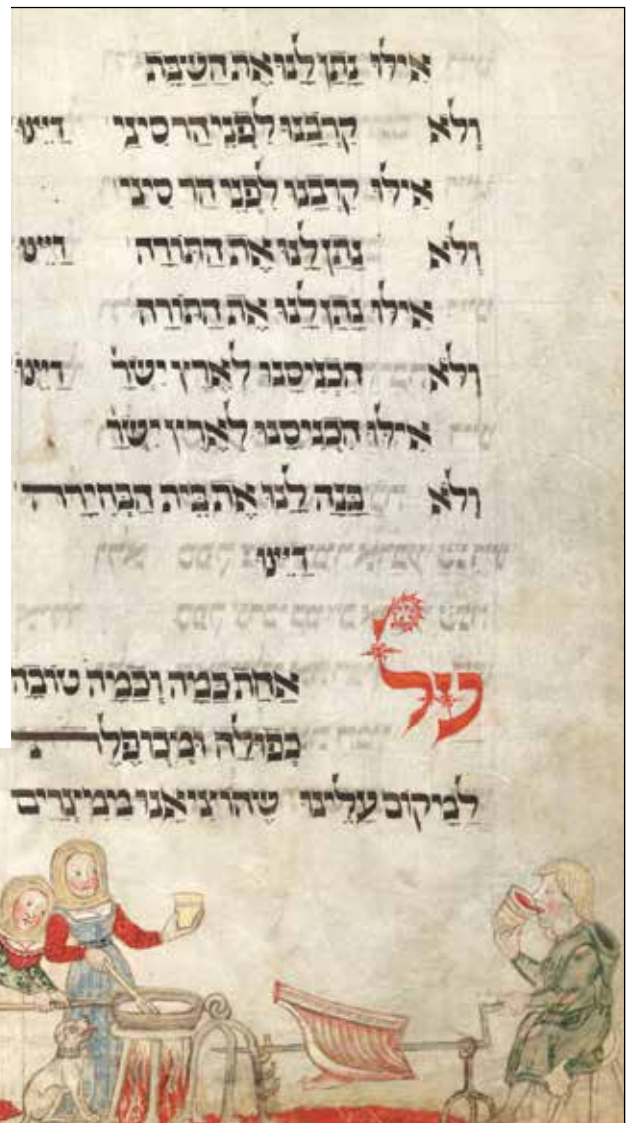 אִילּוּ נָתַן לָנוּ אֶת הַשַׁבָּת
וְלֹא קֵרְבָנוּ לִפְנֵי הַר סִינַי דַיֵינוּ
אִילּוּ קֵרְבָנוּ לִפְנֵי הַר סִינַי
וְלֹא נָתַן לָנוּ אֶת הַתּוֹרָה דַיֵינוּ
אִילּוּ נָתַן לָנוּ אֶת הַתּוֹרָה
וְלֹא הִכְנִיסָנוּ לְאֶרֶץ יִשְׂרָ דַיֵינוּ
אִילּוּ הִכְנִיסָנוּ לְאֶרֶץ יִשְׂרָ
וְלֹא בָּנָה לָנוּ אֶת בֵּית הַבְּחִירָה
דַיֵינוּ
עַל אַחַת כַּמָה וְכַמָה טוֹבָה
כְפוּלָה וּמְכוּפֶלֶת
לַמָקוֹם עָלֵינוּ שֶׁהוֹצִיאָנוּ מִמִצְרַיִם